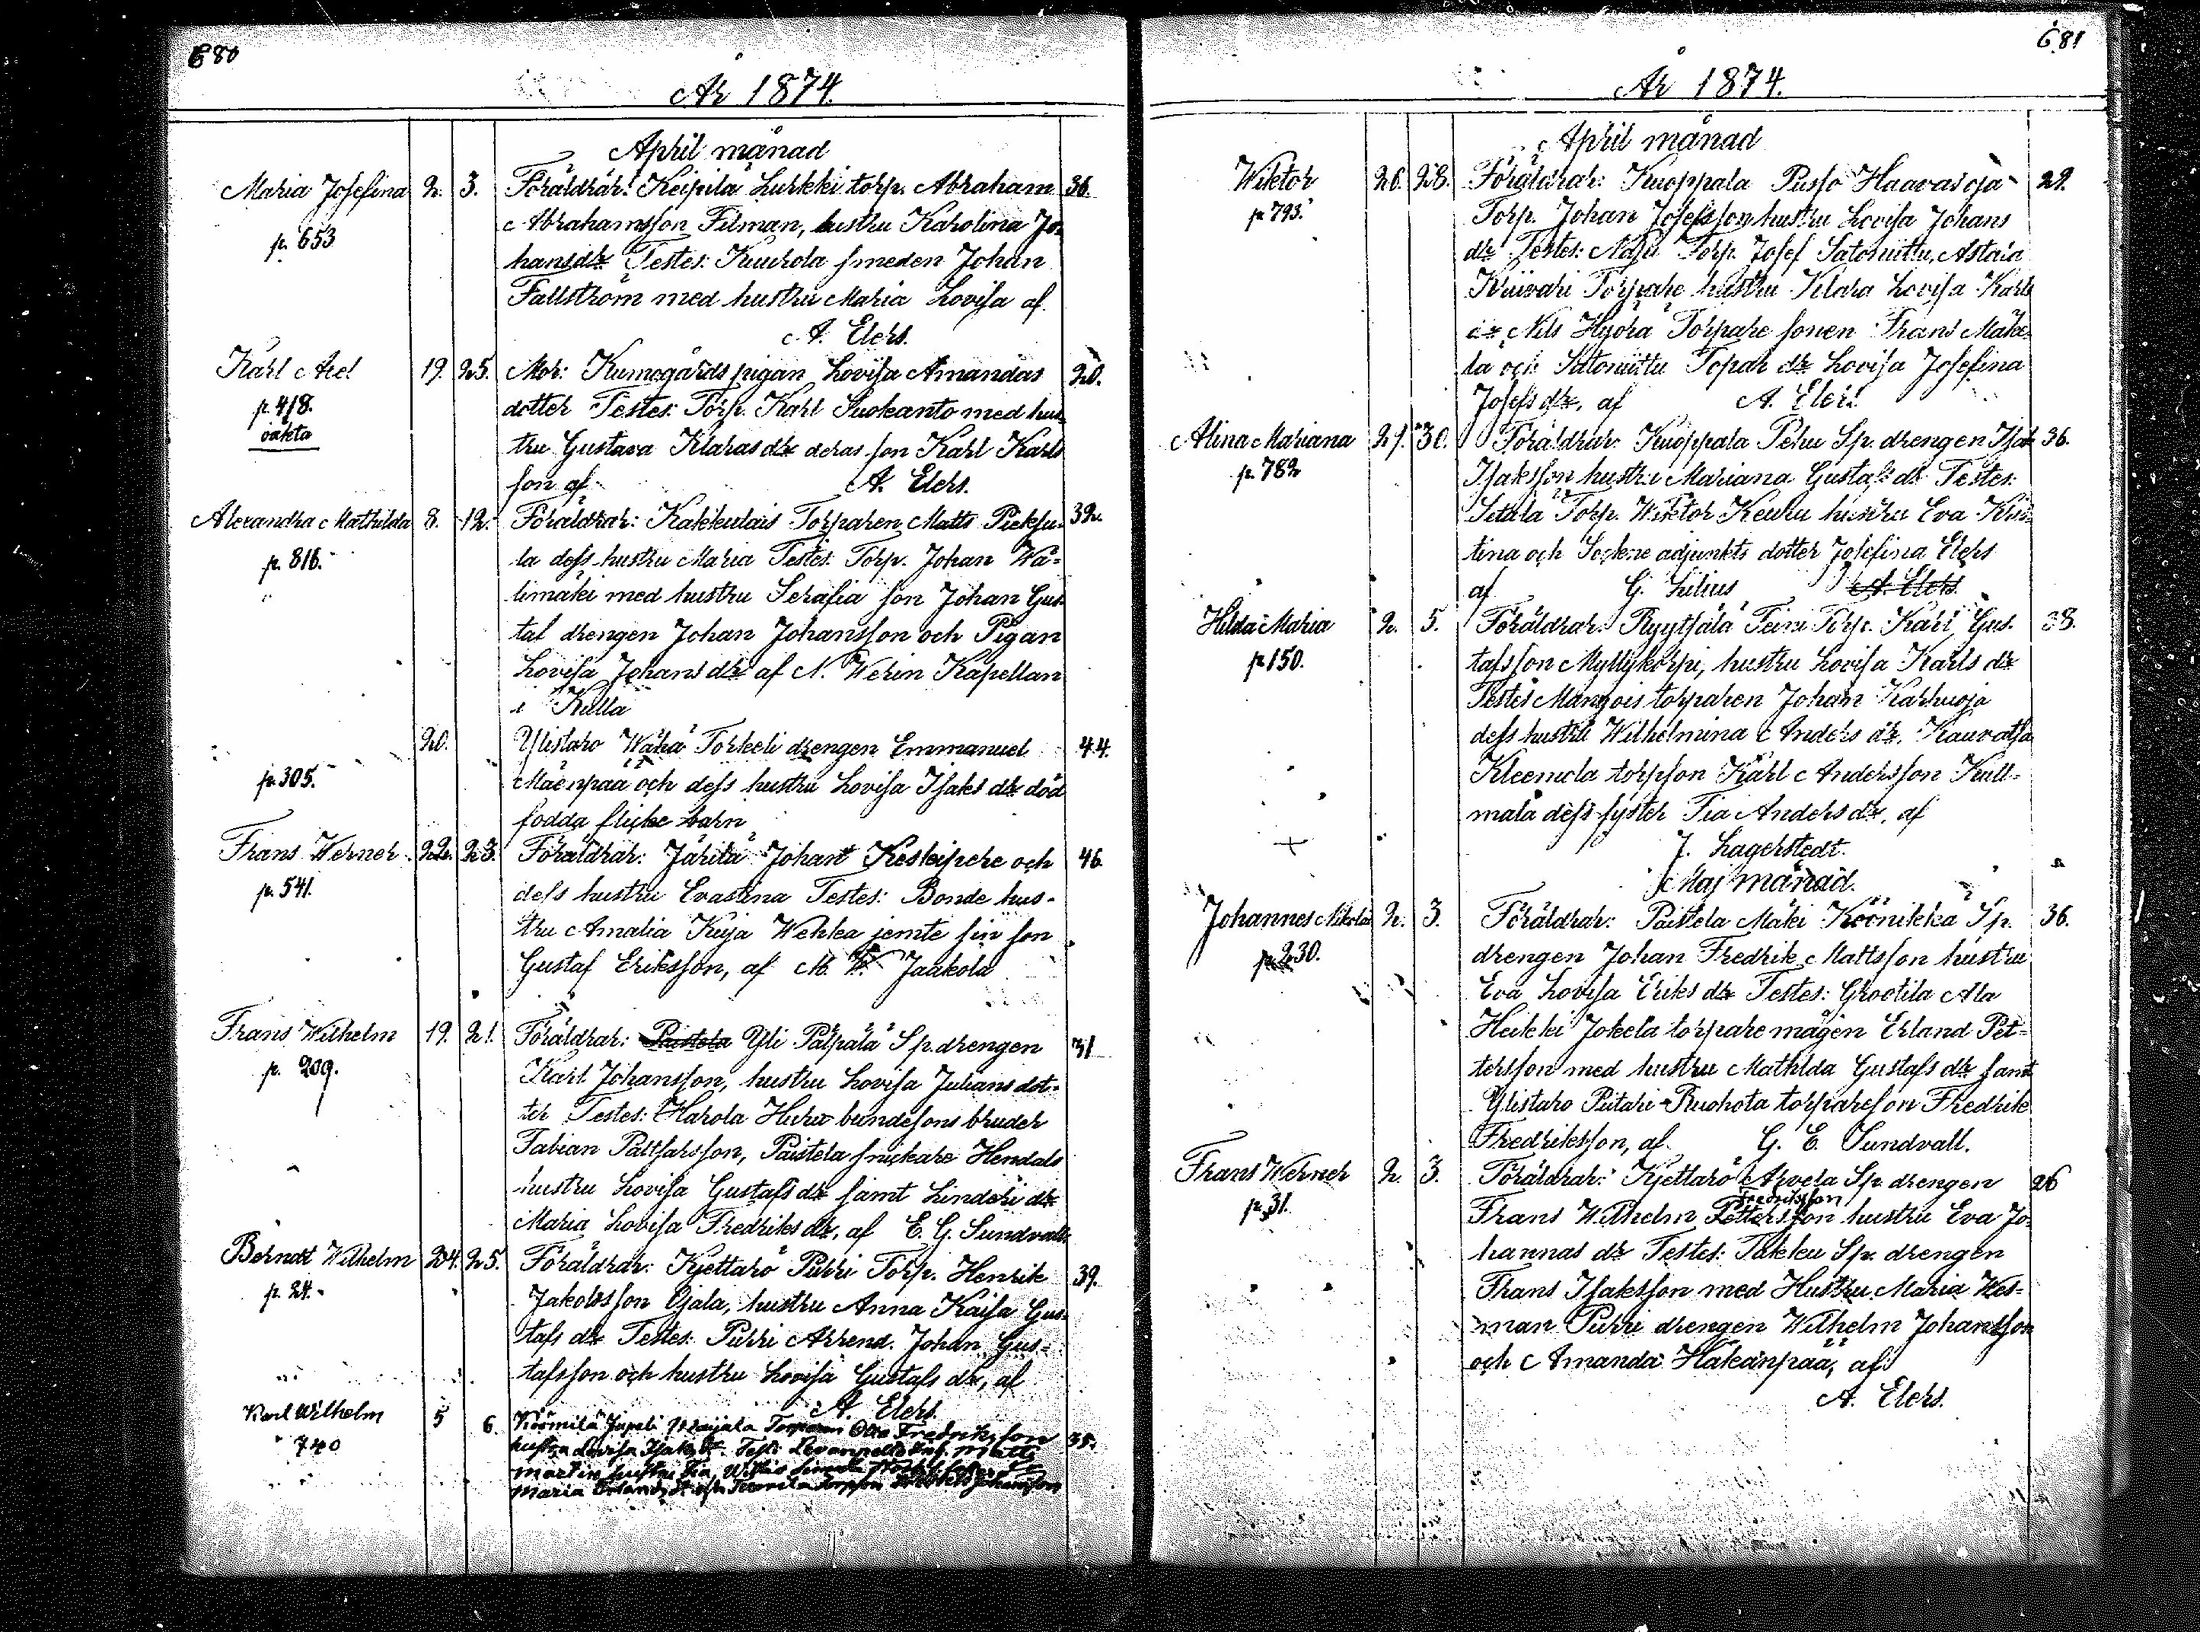 680
År 1874.
April månad
Maria Josefina 2. 3. Föräldrar: Keipilä Lurkki torp. Abraham 36.
p. 653 Abrahamsson Filman, hustru Karolina Jo-
hansdr Testes: Kuurola smeden Johan
Fallström med hustru Maria Lovisa af
A. Elers.
Karl Axel 19. 25. Mor: Kumogårds pigan Lovisa Amandas 20.
p. 418. dotter Testes: Torp. Karl Suokanto med hus-
oäkta tru Gustava Klarasdr deras son Karl Karls
son af A. Elers.
Alexandra Mathilda 8. 12. Föräldrar: Kakkulais Torparen Matts Pieksu- 32.
p. 816. la dess hustru Maria Testes: Torp. Johan Wä-
limäki med hustru Serafia son Johan Gus
taf drengen Johan Johansson och Pigan
Lovisa Johansdr af N. Werin Kapellan
i Kulla
20. Ylistaro Wäha Torkeli drengen Emmanuel 44.
p. 305. Mäenpää och dess hustru Lovisa Isaks dr död
födda flicke barn
Frans Werner 22. 23. Föräldrar: Järilä Johan Keskipere och 46.
p. 541. dess hustru Evastina Testes: Bonde hus-
tru Amalia Kuja Wehka jemte sin son
Gustaf Eriksson, af M. W. Jaakola
Frans Wilhelm 19. 21. Föräldrar: Paistela Yli Pälpälä Sp. drengen 31
p. 209. Karl Johansson, hustru Lovisa Juliansdot-
ter Testes: Harola bondesons bruder
Fabian Baltsarsson, Paistela snickare Hendals
hustru Lovisa Gustafsdr samt Linderi dr
Maria Lovisa Fredriksdr, af E. G. Sundvall
Berndt Wilhelm 24. 25. Föräldrar: Kjettarö Purri Torp. Henrik 39.
p. 24. Jakobsson Ojala, hustru Anna Kaisa Gus-
tafs dr Testes: Purri Arrend. Johan Gus-
tafsson och hustru Lovisa Gustafs dr, af
A. Elers.
Karl Wilhelm 5 6. Torparen Otto Fredriksson 35.
740 hustru Lovisa Isaks dr. Matts
Martin hustru Tia,
Maria och Johansson
681
År 1874.
April månad
Wiktor 26. 28. Föräldrar: Kuoppala Pusso Haavasoja 29.
p 793. Torp. Johan Josefsson hustru Lovisa Johans
dr Testes: Nasu Torp. Josef Satomittu, Astala
Kiivari Torpare hustru Klara Lovisa Karls
dr Nils Hyöra Torpare sonen Frans Mäke-
lä och Satomittu Topar dr Lovisa Josefina
Josefsdr, af A. Elers.
Alina Mariana 27. 30. Föräldrar: Kuoppala Pehu Sp. drengen Isak 36.
p. 782 Isaksson hustru Mariana Gustafs dr Testes:
Torp. Wiktor Keuru hustru Eva Kris-
tina och Sockne adjunkts dotter Josefina Elers
af G. Lilius A. Elers.
Hilda Maria 2. 5. Föräldrar: Ryytsälä Teini Torp. Karl Gus- 38.
p 150. tafsson Myllykorpi, hustru Lovisa Karls dr
Testes Mangois torparen Johan Karhuoja
dess hustru Wilhelmina Anders dr. Kauvatsa
Kleemola torpson Karl Andersson Kull-
mala dess syster Tia Anders dr, af
J. Lagerstedt.
Maj månad.
Johannes Nikolai 2. 3. Föräldrar: Paistela Mäki Köönikkä Sp. 36.
p. 230. drengen Johan Fredrik Mattsson hustru
Eva Lovisa Eriks dr Testes: Grootila Ala
Heikki Jokela torpare mågen Erland Pet-
tersson med hustru Mathilda Gustafs dr samt
Ylistaro Piitari Ruohota torpareson Fredrik
Fredriksson, af G. E. Sundvall.
Frans Werner 2. 3. Föräldrar: Kjettarö Arvela Sp. drengen 26
p. 31. Frans Wilhelm Pettersson Fredriksson hustru Eva Jo-
hannas dr Testes: Takku Sp. drengen
Frans Isaksson med Hustru Maria Wes-
man Purri drengen Wilhelm Johansson
och Amanda Hakanpää, af
A. Elers.